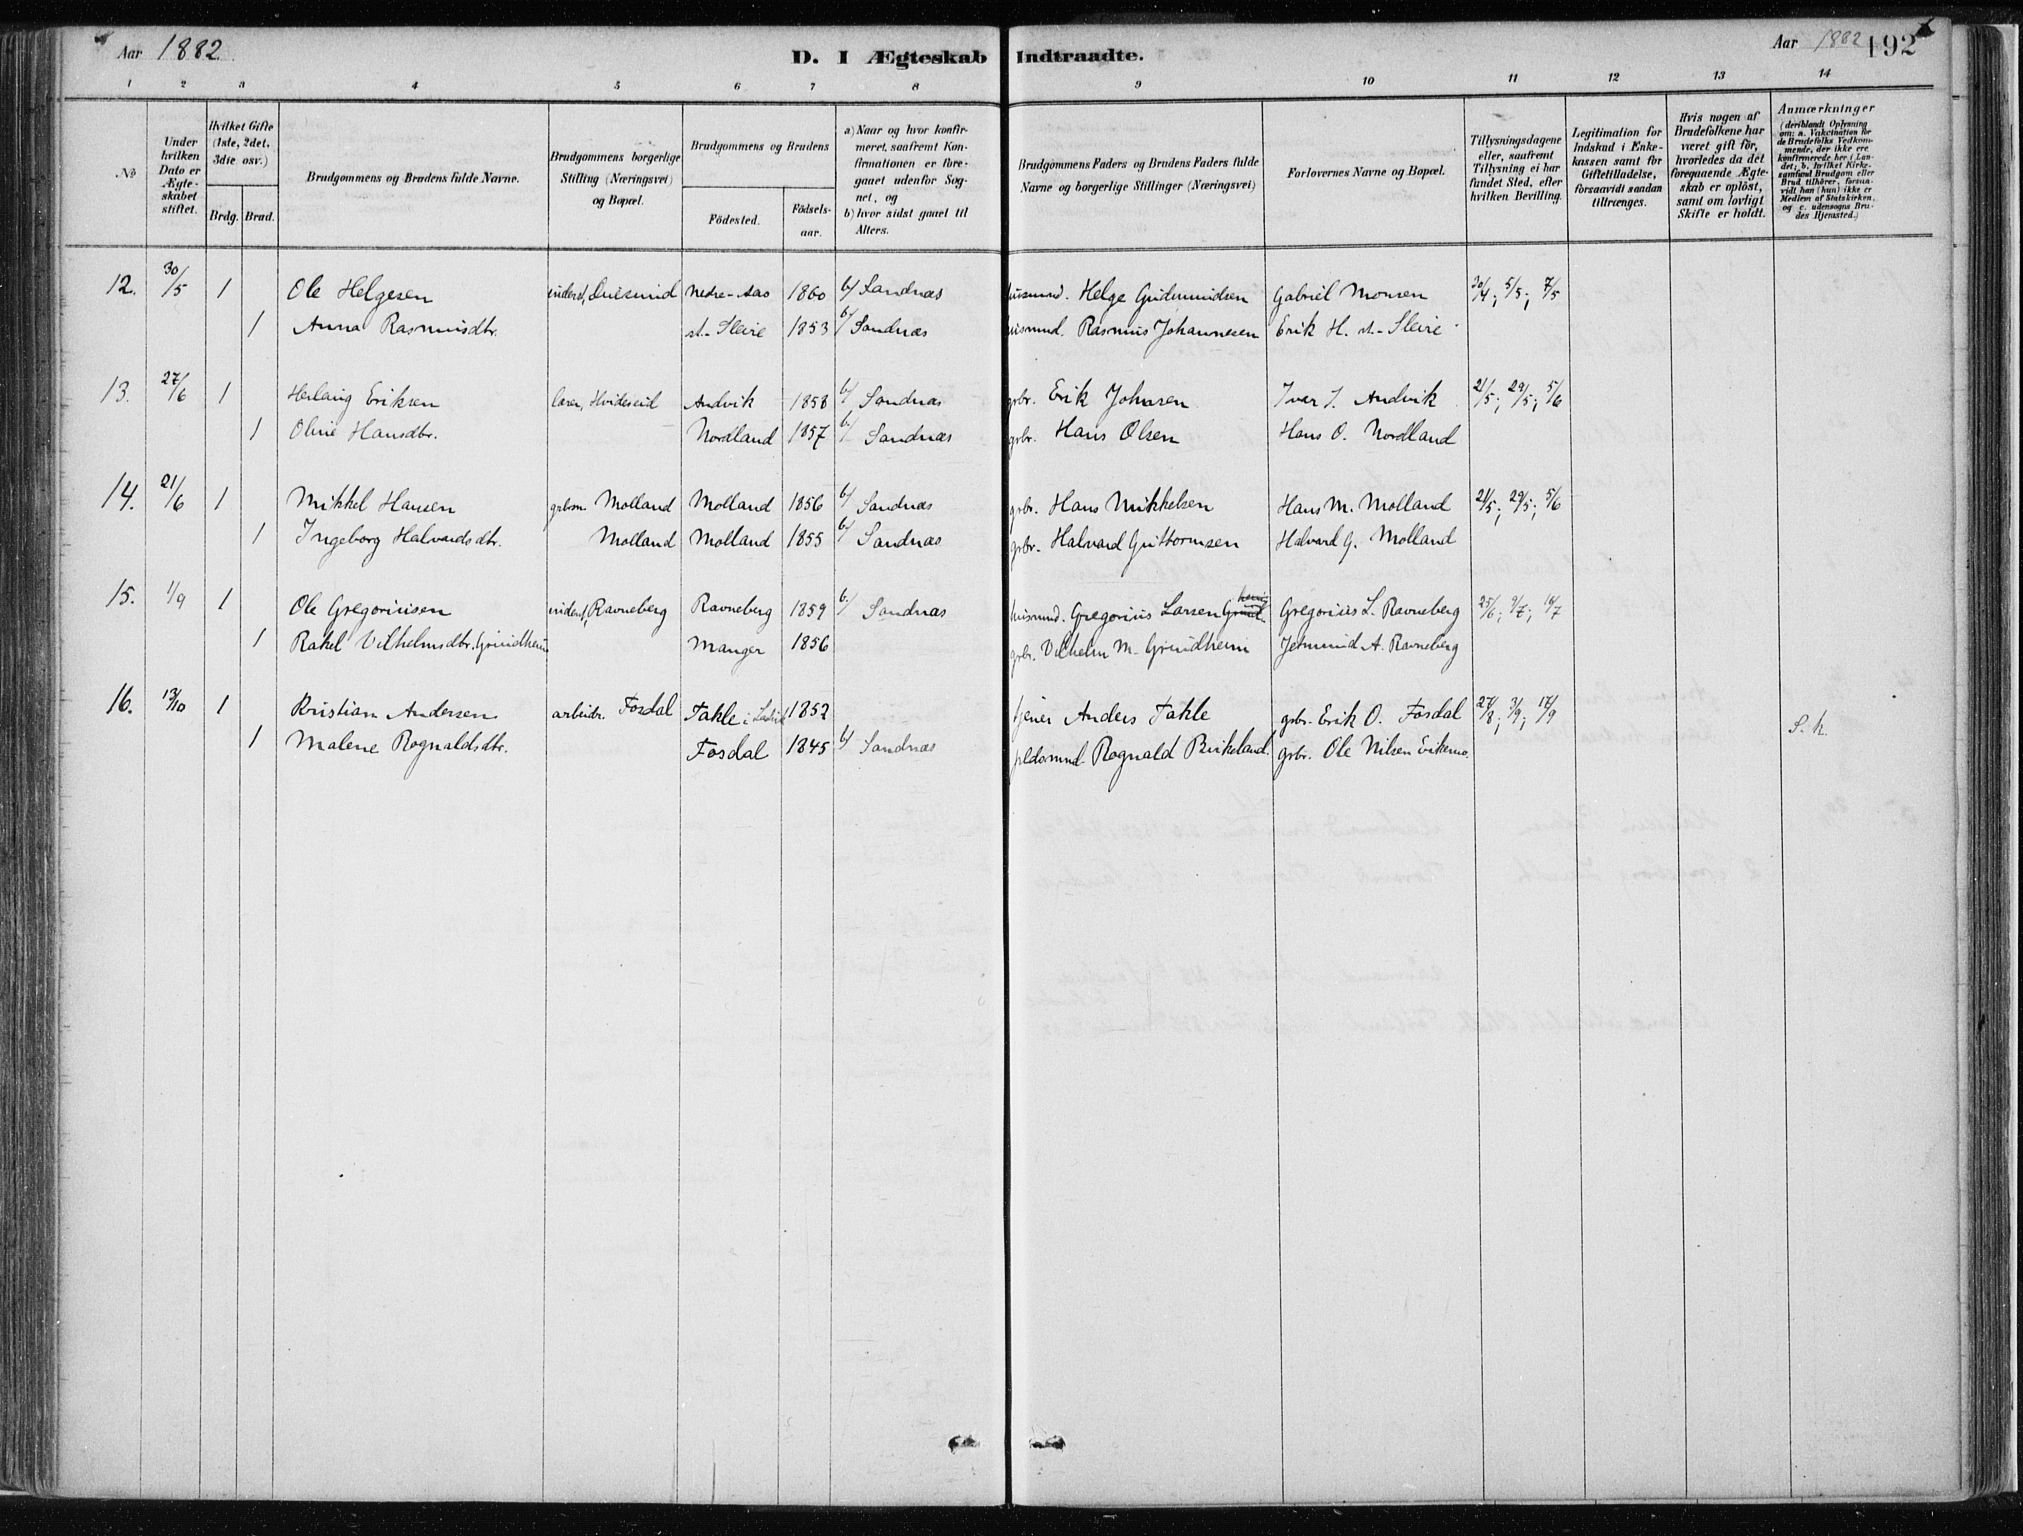 Aar 1882.
D. I Ægteskab Indtraadte.
Aar 1882 192
1 2 3 4 5 6 7 8 9 10 11 12 13 14
No
Under hvilken Dato er Ægteskabet stiftet.
Hvilket Gifte (1ste, 2det, 3die osv.)
Brdg. Brud.
Brudgommens og Brudens fulde Navne.
Brudgommens borgerlige Stilling (Næringsvei) og Bopæl.
Brudgommens og Brudens
Födested. Födselsaar.
a) Naar og hvor konfirmeret, saafremt Konfirmationen er foregaaet udenfor Sognet, og
b) hvor sidst gaaet til Alters.
Brudgommens Faders og Brudens Faders fulde Navne og borgerlige Stillinger (Næringsvei)
Forlovernes Navne og Bopæl.
Tillysningsdagene eller, saafremt Tillysning ei har fundet Sted, efter hvilken Bevilling.
Legitimation for Indskud i Enkekassen samt for Giftetilladelse, forsaavidt saadan tiltrænges.
Hvis nogen af Brudefolkene har været gift før, hvorledes da det foregaaende Ægteskab er oplöst, samt om lovligt Skifte er holdt.
Anmærkninger (deriblandt Oplysning om: a. Vakcination for de Brudefolks Vedkommende, der ikke ere konfirmerede her i Landet; b. hvilket Kirkesamfund Brudgom eller Brud tilhörer, forsaavidt han (hun) ikke er Medlem af Statskirken, og c. udensogns Brudes Hjemsted.)
12. 30/5 1 Ole Helgesen inderst, Duesund Nedre-Aas 1860 b/ Sandnæs husmnd. Helge Gudmundsen Gabriel Monsen 30/4; 5/5; 7/5
1 Anna Rasmusdtr. st.-Sleire 1853 b/ Sandnæs husmnd. Rasmus Johannesen Erik H. st.-Sleire
13. 27/6 1 Herlaug Eriksen lærer, Hvideseid Andvik 1858 b/ Sandnæs grbr. Erik Johnsen Ivar J. Andvik 21/5; 29/5; 5/6
1 Oline Hansdtr. Nordland 1857 b/ Sandnæs grbr. Hans Olsen Hans O. Nordland
14. 21/6 1 Mikkel Hansen grbsn. Molland Molland 1856 b/ Sandnæs grbr. Hans Mikkelsen Hans M. Molland 21/5; 29/5; 5/6
1 Ingeborg Halvardsdtr. Molland Molland 1855 b/ Sandnæs grbr. Halvard Guttormsen Halvard G. Molland
15. 1/9 1 Ole Gregoriusen inderst, Ravneberg Ravneberg 1859 b/ Sandnæs husmnd. Gregorius Larsen Gregorius L. Ravneberg 25/6; 9/7; 16/7
1 Rakel Vilhelmsdtr. Grindheim Manger 1856 grbr. Vilhelm M. Grindheim Jetmund A. Ravneberg
16. 13/10 1 Kristian Andersen arbeidr. Fosdal Takle i 1852 tjener Anders Takle grbr. Erik O. Fosdal 27/8; 3/9; 17/9
1 Malene Rognaldsdtr. Fosdal 1845 b/ Sandnæs pldsmnd. Rognald Birkeland. grbr. Ole Nilsen Eikemo. S. k.